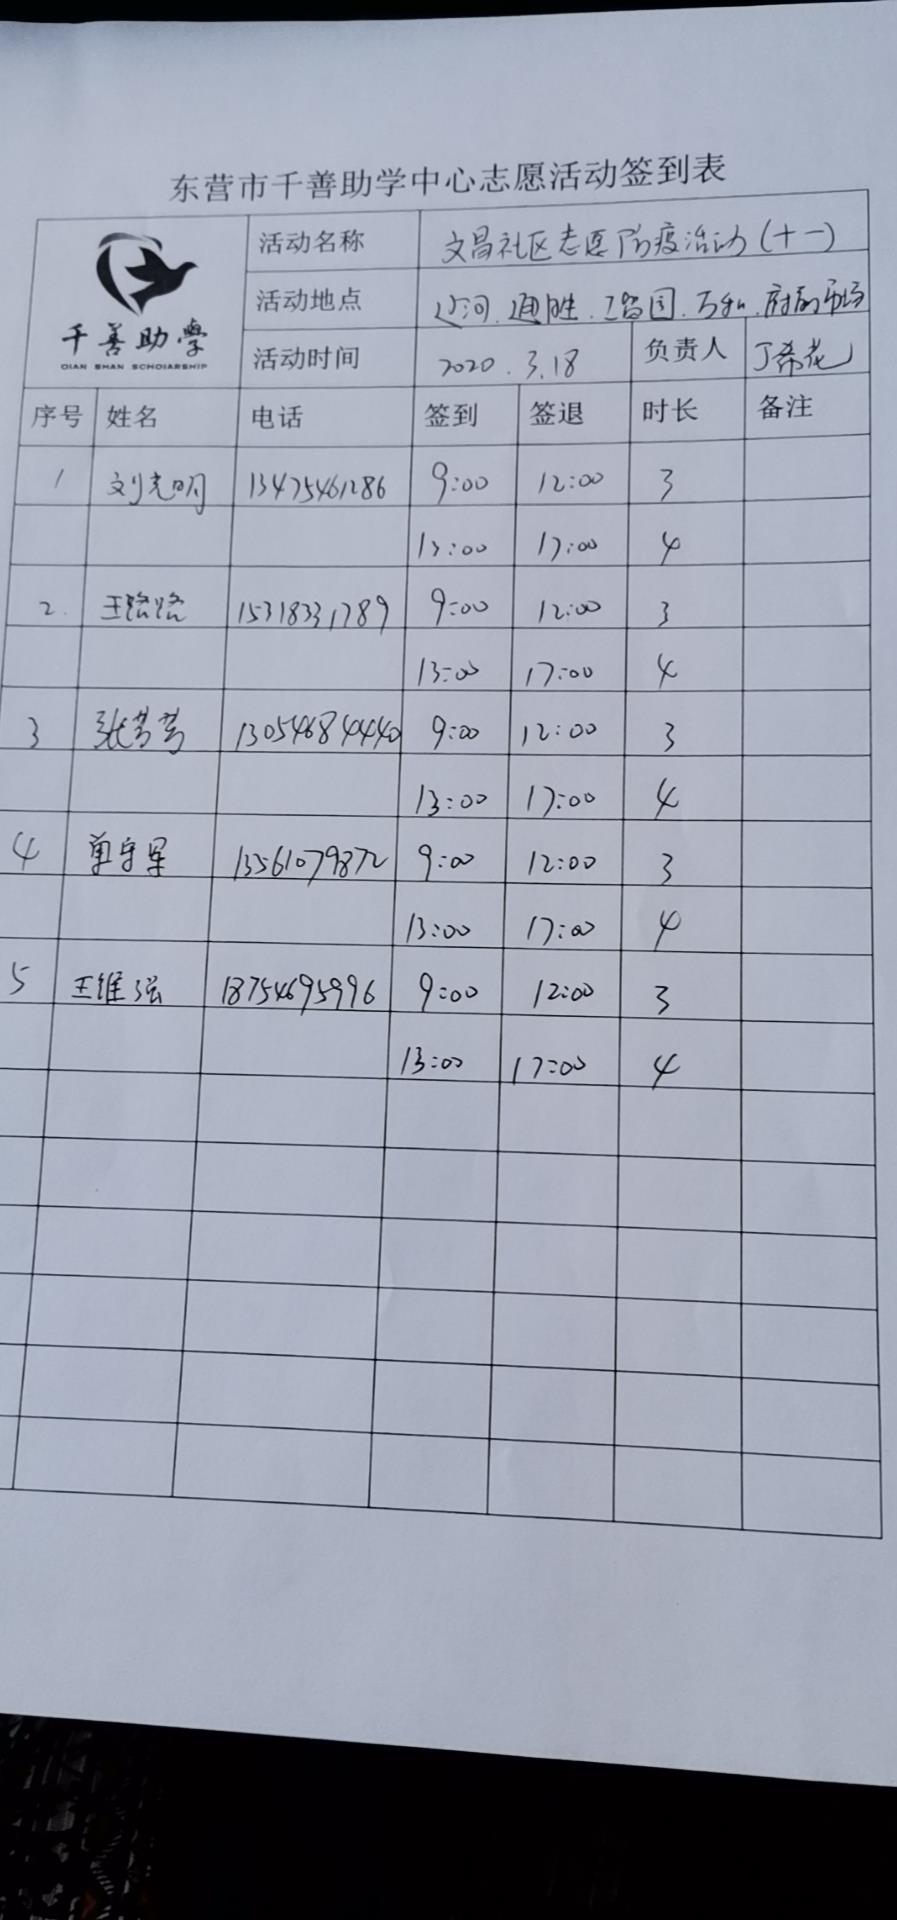 东营市千善助学中心志愿活动签到表
千善助學
QIAN SHAN SCHOIARSHIP
活动名称 文昌社区志愿防疫活动(十一)
活动地点 辽河.通胜.万和.府前市场
活动时间 2020.3.18 负责人 丁希花
序号 姓名 电话 签到 签退 时长 备注
1 刘光明 13475461286 9:00 12:00 3
13:00 17:00 4
2. 王路路 15318331789 9:00 12:00 3
13:00 17:00 4
3 张芳芳 13054684440 9:00 12:00 3
13:00 17:00 4
4 单守军 13561079872 9:00 12:00 3
13:00 17:00 4
5 王维强 18754695996 9:00 12:00 3
13:00 17:00 4